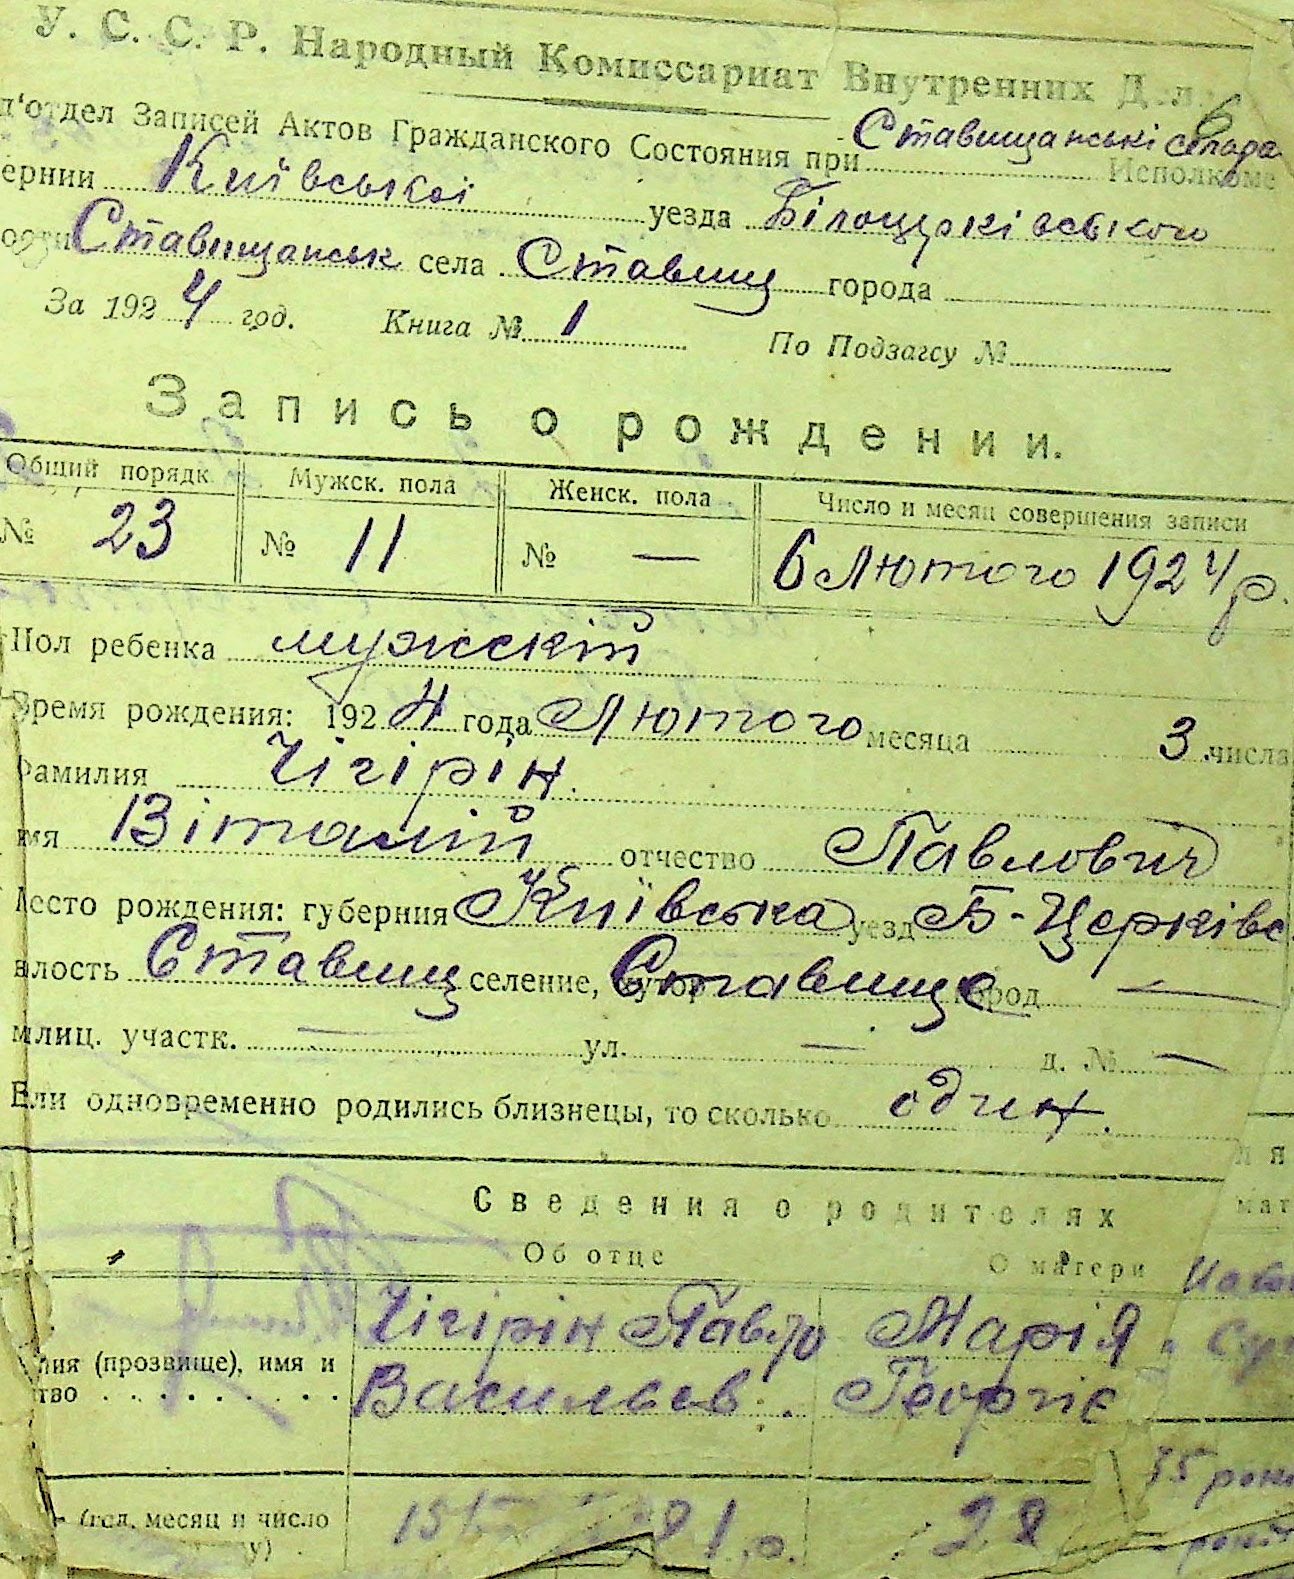 У. С. С. Р. Народный Комиссариат Внутренних Д л.
д'отдел Записей Актов Гражданского Состояния при Ставищанські Исполкоме
ернии Київської уезда Білоцерківського
ости Ставищанськ села Ставищ города
За 1924 год. Книга № 1 По Подзагсу №
Запись о рождении.
Общий порядк Мужск. пола Женск. пола Число и месяц совершения записи
№ 23 № 11 № — 6 Лютого 1924 р.
Пол ребенка мужскій
Время рождения: 1924 года Лютого месяца 3 числа
Фамилия Чігірін.
имя Віталій отчество Павлович
Место рождения: губерния Київська уезд Б-Церківс
олость Ставищ селение, хутор Ставище город —
милиц. участк. — ул. — д. № —
Если одновременно родились близнецы, то сколько один.
Сведения о родителях
мат
Об отце О матери
Чігірін Павло Марія
лия (прозвище), имя и
тво . . . . . . . . . . Васильев. Георгіє
35 роки
(год, месяц и число 28